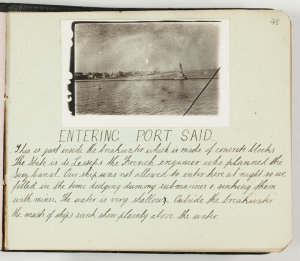 48
ENTERING PORT SAID.
This is just inside the breakwater which is made of concrete blocks
The State is de Lesseps the French engineer who planned the
Suez canal. Our ship was not allowed to enter here at night so we
filled in the time dodging dummy submarines & sinking them
with mines. the water is very shallow. Outside the breakwater
the masts of ships sunk show plainly above the water.